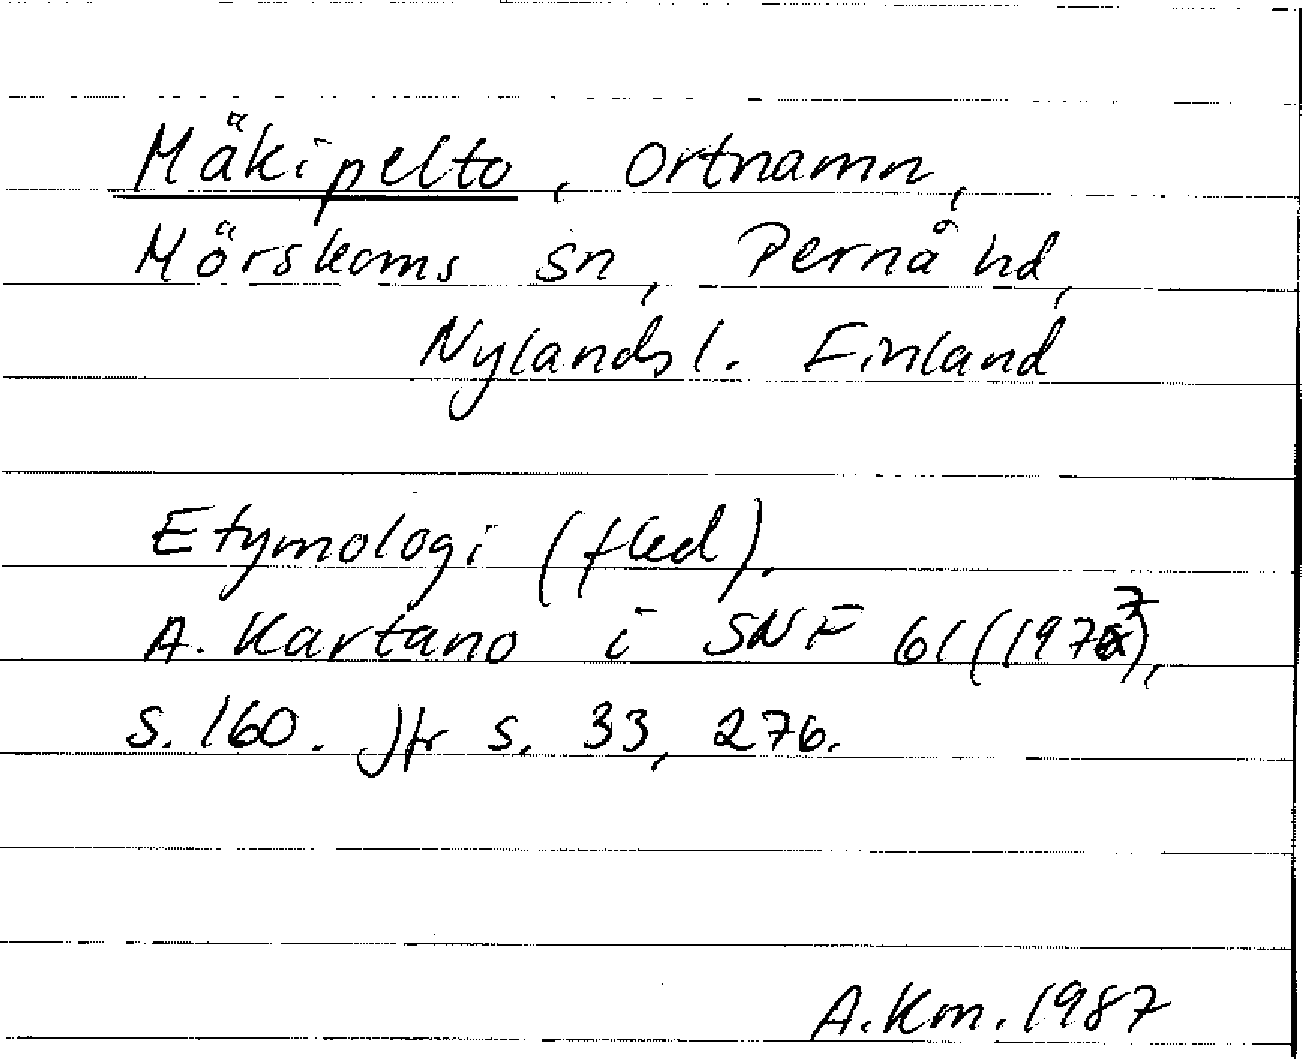 Mäkipelto, ortnamn,
Mörskoms sn, Pernå hd,
Nylands l. Finland
Etymologi (fled).
A. Kartano i SNF 61 (1973),
s. 160. Jfr s. 33, 276.
A.Km. 1987